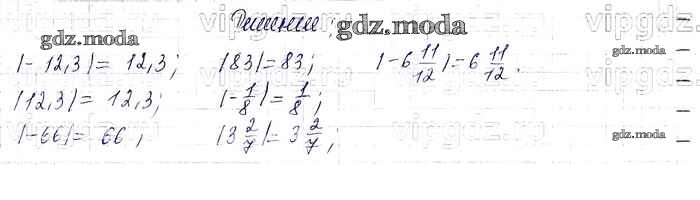 Решение:
gdz.moda
gdz.moda
|-12,3|= 12,3; |83|=83; |-6 11/12|=6 11/12.
|12,3|= 12,3; |-1/8|= 1/8;
|-66|= 66; |3 2/7|= 3 2/7;
gdz.moda
gdz.moda
vipgdz
vipgdz.ru
vipgdz
vipgdz.ru